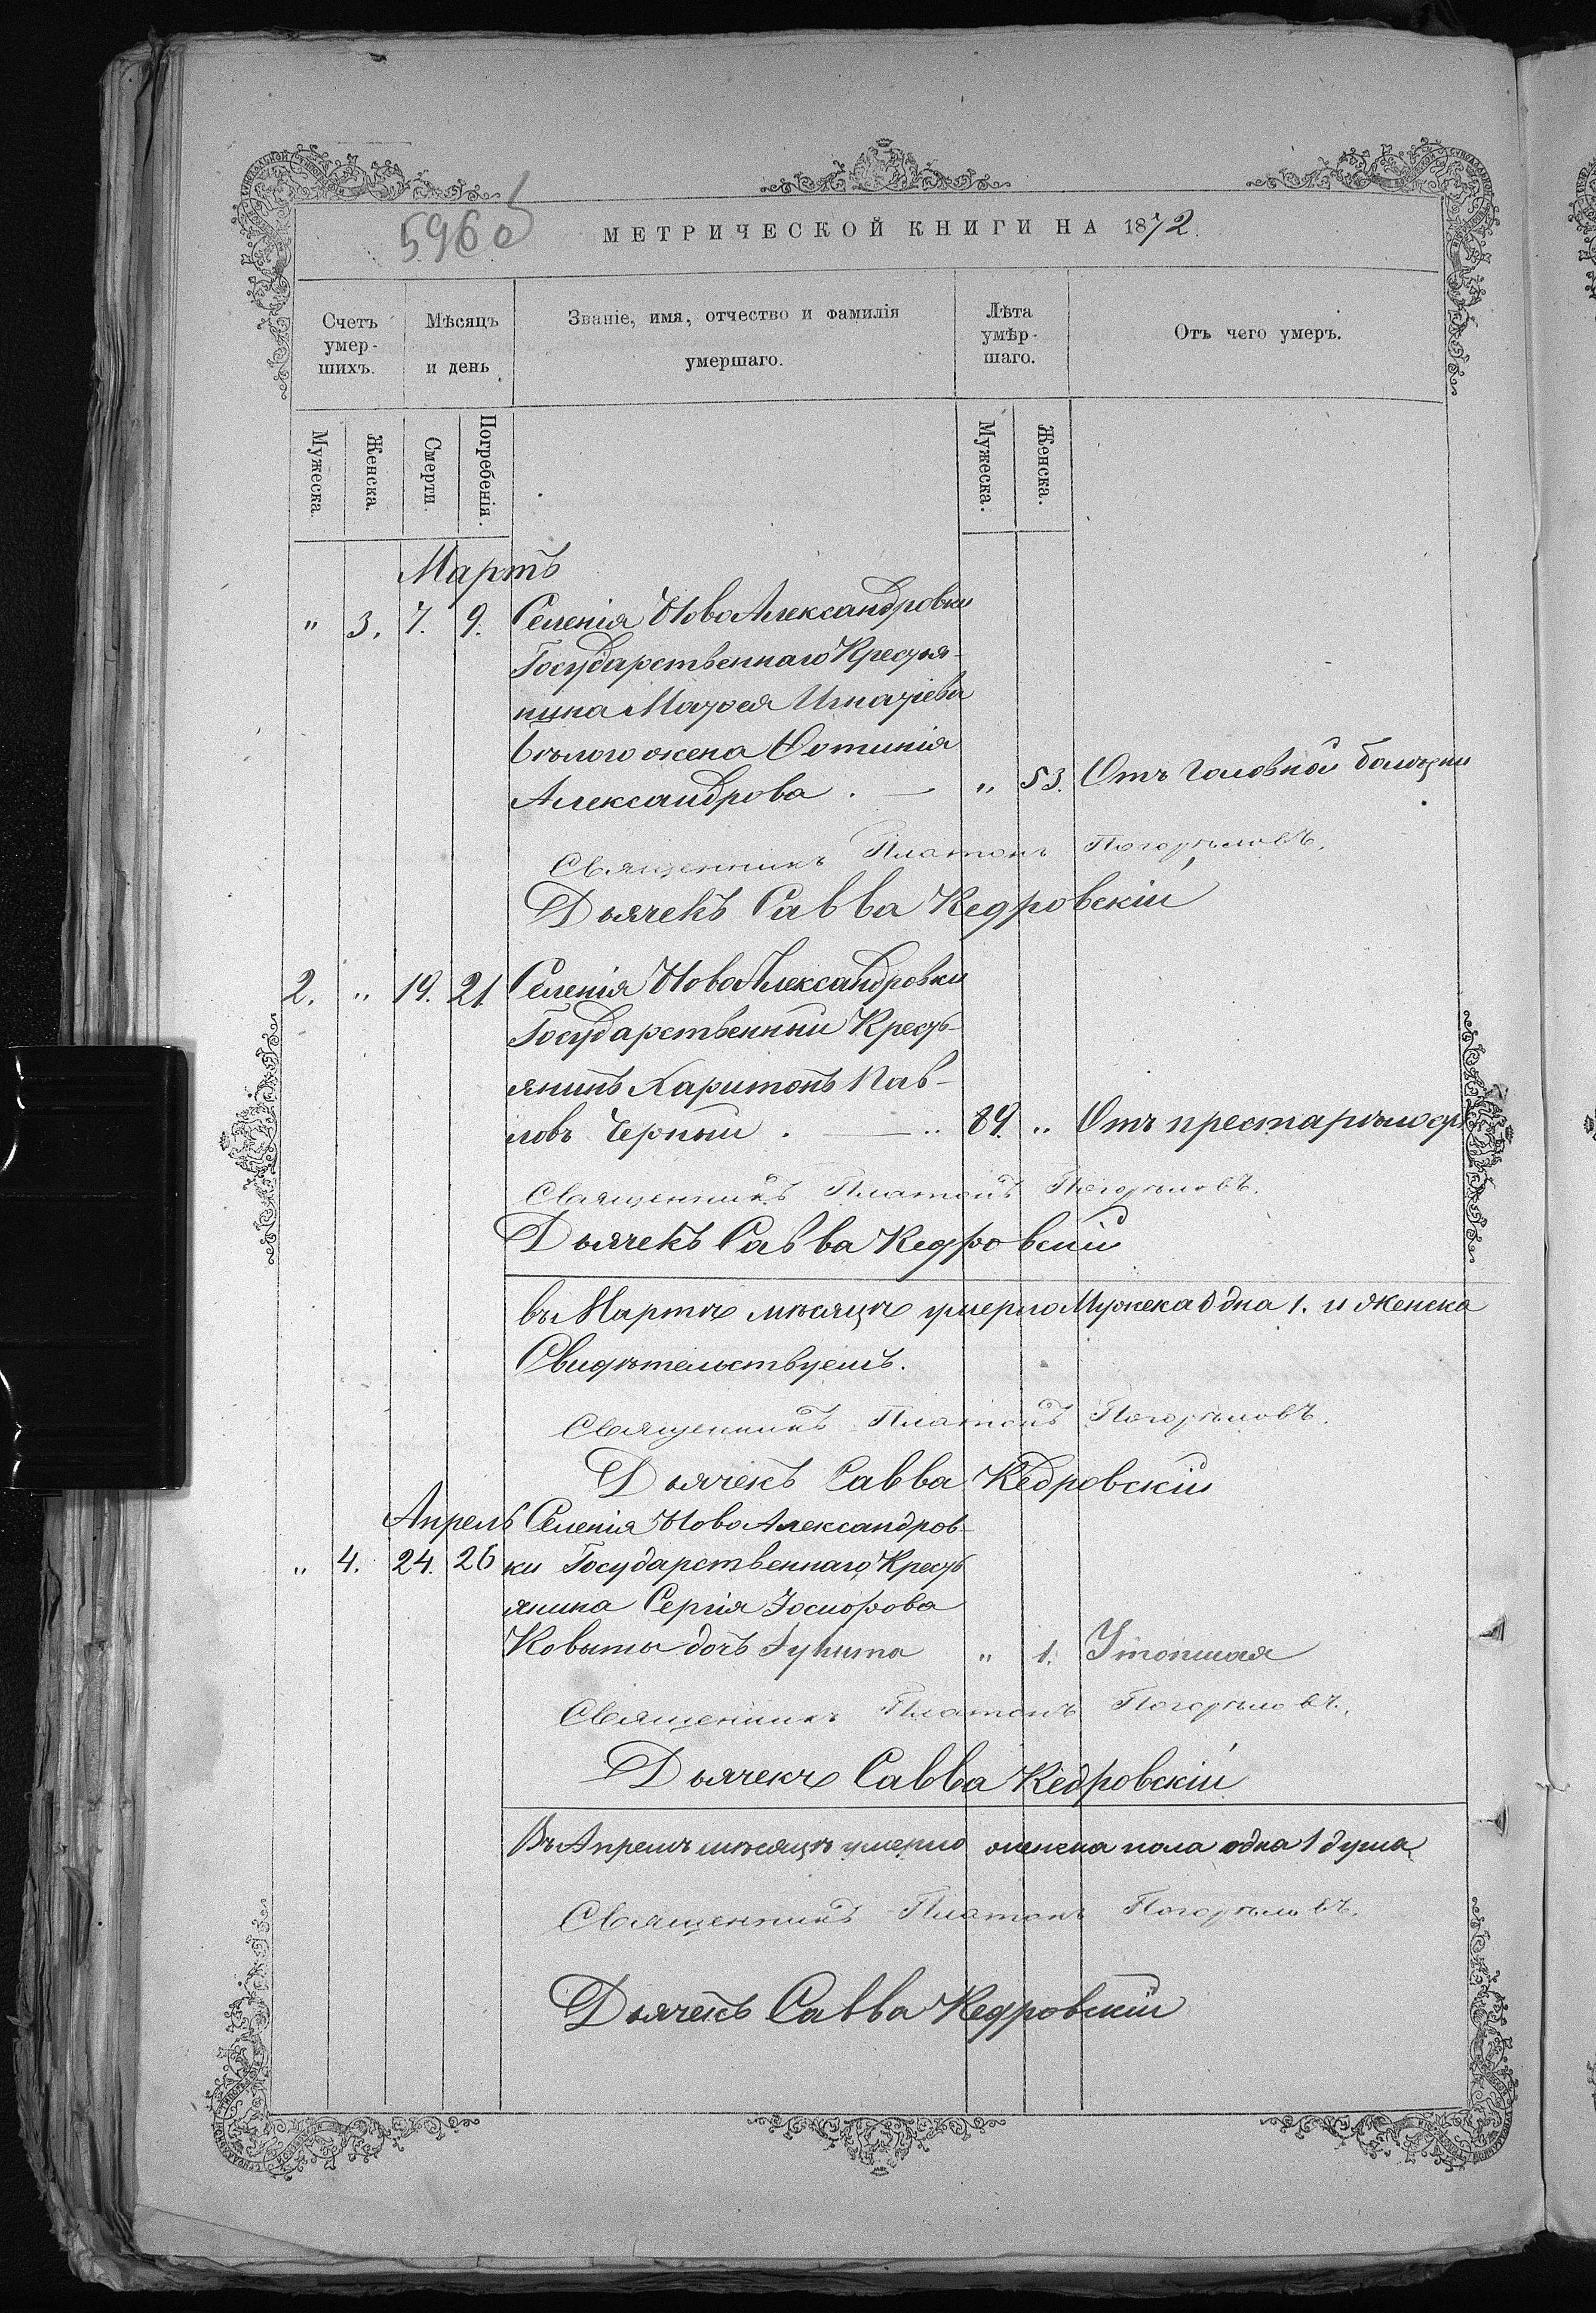 596 об
МЕТРИЧЕСКОЙ КНИГИ НА 1872.
Счетъ умер- шихъ.
Мѣсяцъ и день
Званіе, имя, отчество и фамилія умершаго.
Лѣта умѣр- шаго.
Отъ чего умеръ.
Мужеска.
Женска.
Смерти.
Погребенія.
Мужеска.
Женска.
Мартъ
" 3. 7. 9. Селенія НовоАлександровки
Государственнаго Крестья-
нина Матвея Игнатіева
Бѣлого жена Фотинія
Александрова . — " 53. Отъ Головной болѣзни
Священникъ Платонъ Погорѣловъ.
Дьячекъ Савва Кедровскій
2. " 19. 21 Селенія НовоАлександровки
Государственный Кресть-
янинъ Харитонъ Пав-
ловъ Черный . — 89. " Отъ престарѣлост
Священникъ Платонъ Погорѣловъ.
Дьячекъ Савва Кедровскій
въ Мартѣ мѣсяцѣ умерло Мужеска Одна 1. и Женска
Свидѣтельствуемъ.
Священникъ Платонъ Погорѣловъ.
Дьячекъ Савва Кедровскій
Апрель Селенія НовоАлександров-
" 4. 24. 26 ки Государственнаго Кресть
янина Сергія
дочь " 1. Утопшая
Священникъ Платонъ Погорѣловъ.
Дьячекъ Савва Кедровскій
Въ Апрелѣ мѣсяцѣ умерло женска пола одна 1 душа
Священникъ Платонъ Погорѣловъ.
Дьячекъ Савва Кедровскій